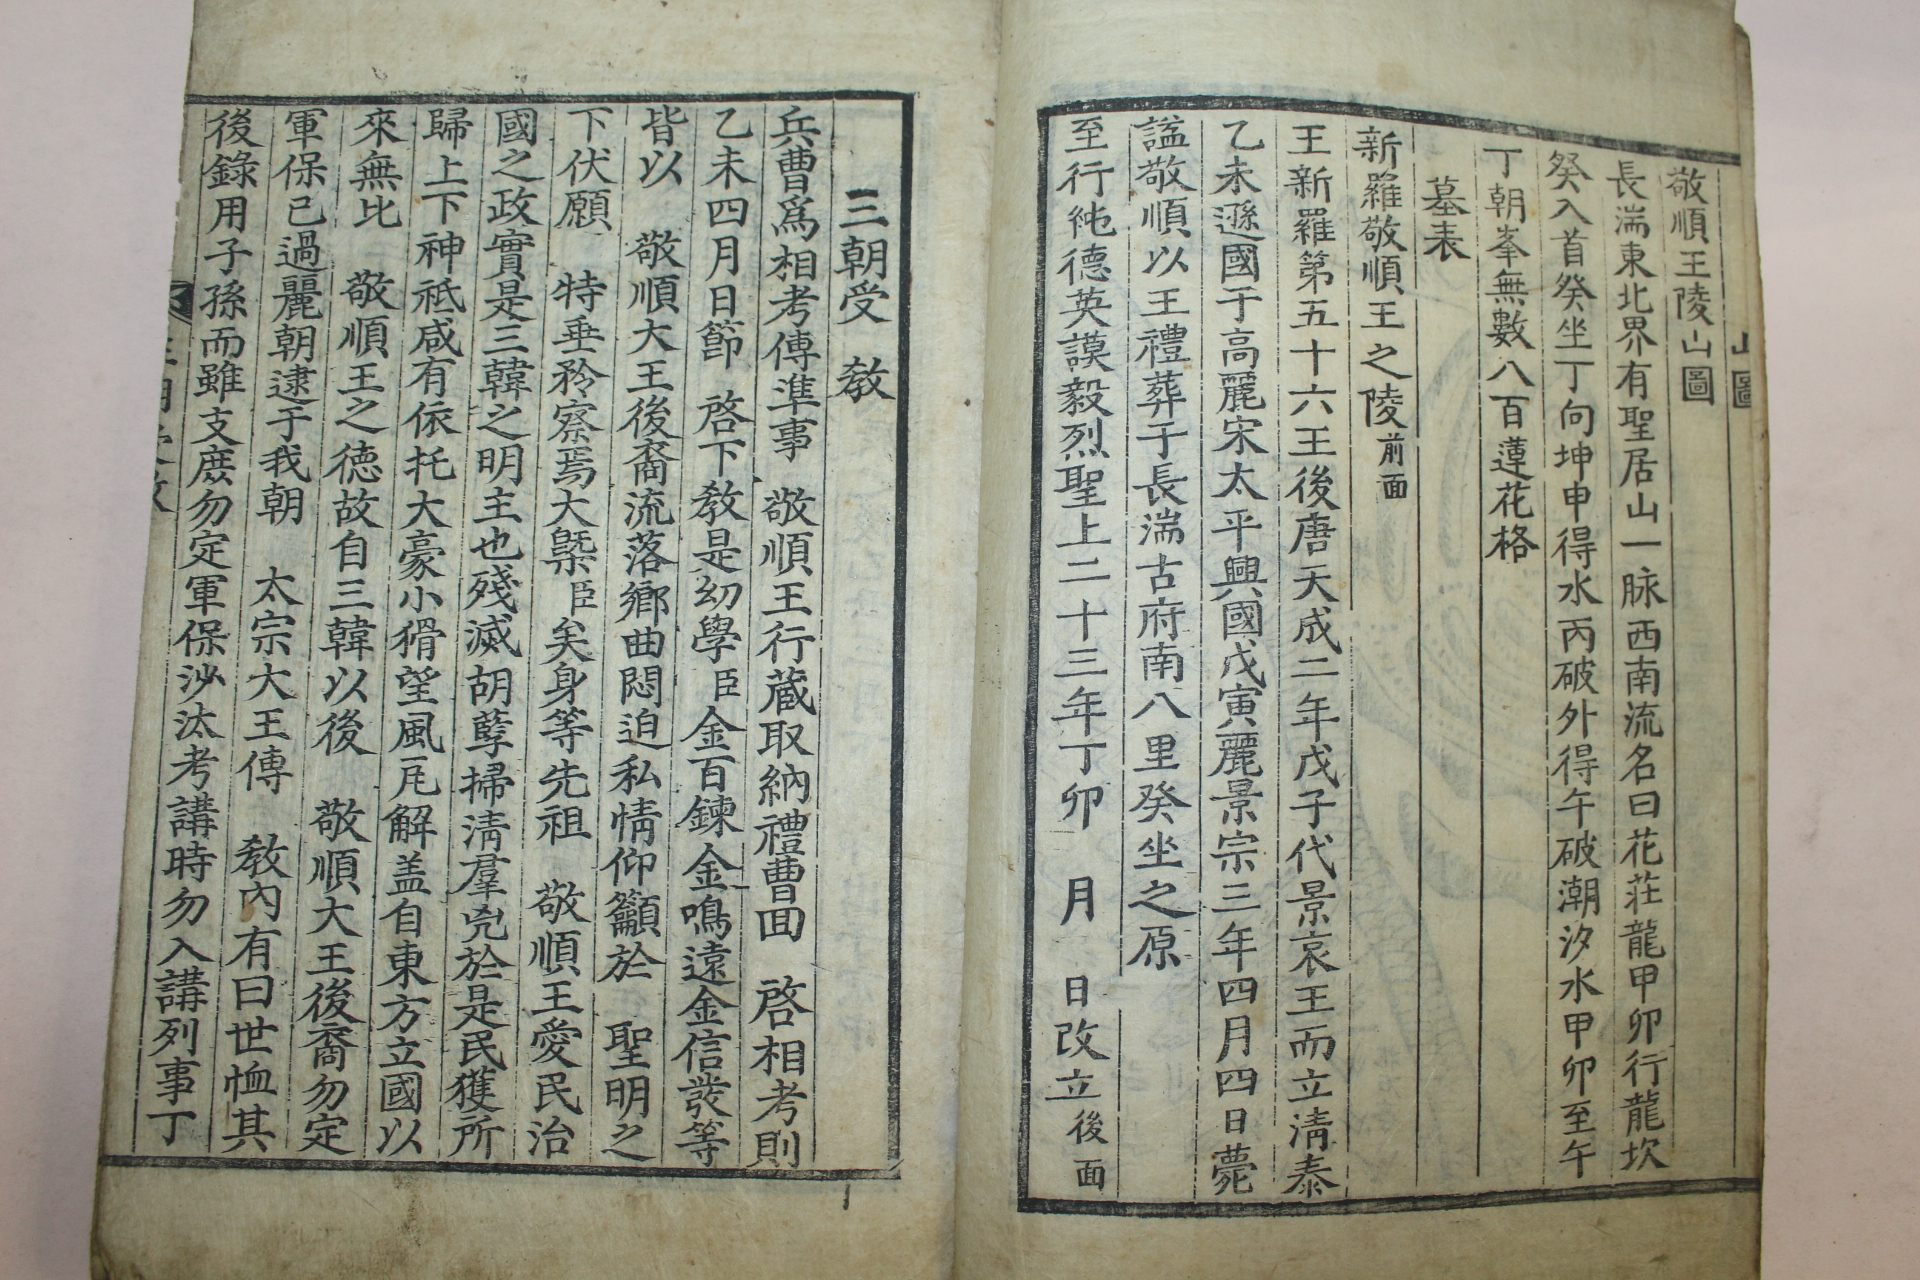 山圖
敬順王陵山圖
長湍東北界有聖居山一脉西南流名曰花莊龍甲卯行龍坎
癸入首癸坐丁向坤申得水丙破外得午破潮汐水甲卯至午
丁朝峯無數八百蓮花格
墓表
新羅敬順王之陵前面
王新羅第五十六王後唐天成二年戊子代景哀王而立淸泰
乙未遜國于高麗宋太平興國戊寅麗景宗三年四月四日薨
謚敬順以王禮葬于長湍古府南八里癸坐之原
至行純德英謨毅烈聖上二十三年丁卯 月 日改立後面
三朝受 敎
兵曹爲相考傳準事 敬順王行蔵取納禮曹回 啓相考則
乙未四月日節 啓下敎是幼學臣金百鍊金鳴遠金信發等
皆以 敬順大王後裔流落鄕曲悶迫私情仰籲於 聖明之
下伏願 特垂矜察焉大槩臣矣身等先祖 敬順王愛民治
國之政實是三韓之明主也殘滅胡孽掃淸羣兇於是民獲所
歸上下神祗咸有依托大豪小猾望風瓦解盖自東方立國以
來無比 敬順王之德故自三韓以後 敬順大王後裔勿定
軍保已過麗朝逮于我朝 太宗大王傳 敎內有曰世恤其
後錄用子孫而雖支庶勿定軍保沙汰考講時勿入講列事丁
三朝受敎